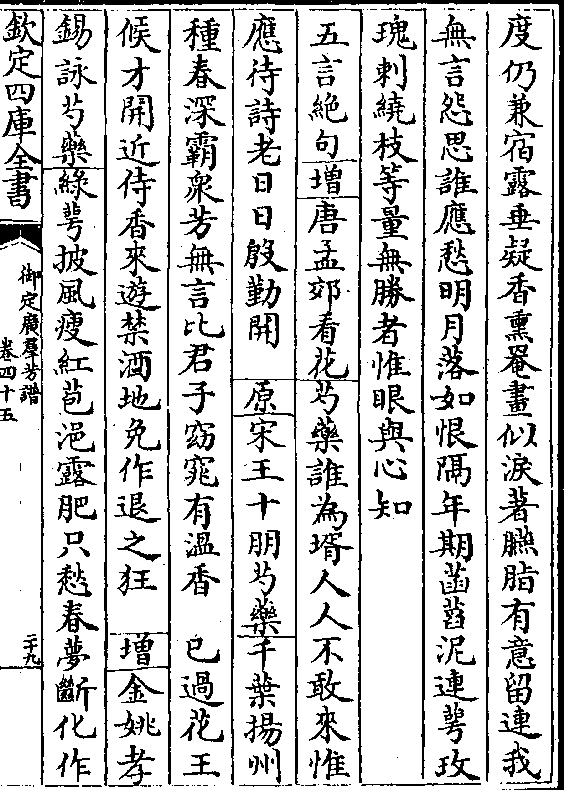 度仍兼宿露垂疑香熏罨畫似淚著臙脂有意留連我
無言怨思誰應愁明月落如恨隔年期菡萏泥連萼玫
瑰刺繞枝等量無勝者惟眼與心知
五言絶句增唐孟郊看花芍藥誰為壻人人不敢來惟
應待詩老日日殷勤開　原宋王十朋芍藥千葉揚州
種春深霸衆芳無言比君子窈窕有溫香　已過花王
候才開近侍香來遊禁酒地免作退之狂　增金姚孝
錫詠芍藥綠萼披風瘦紅苞浥露肥只愁春夢斷化作
欽定四庫全書
御定廣羣芳譜
卷四十五
二十九